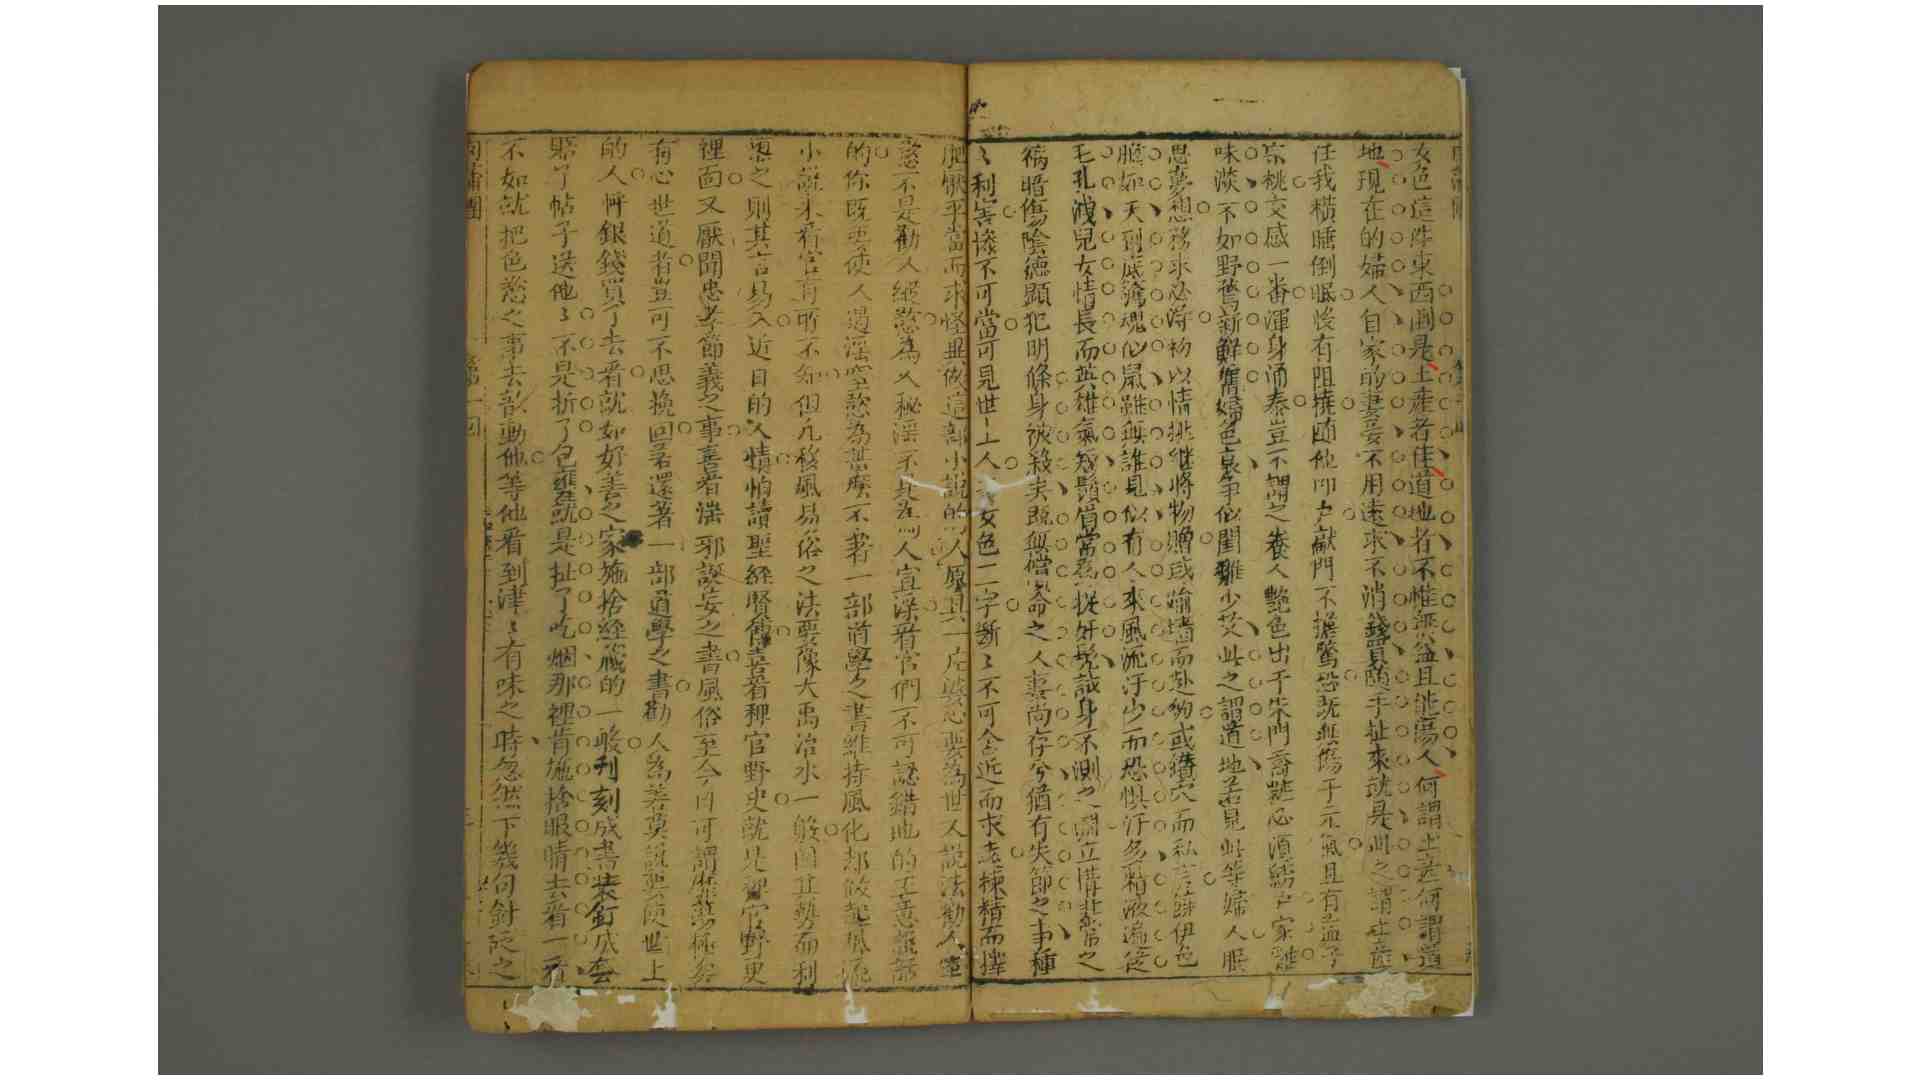 女色這件東西倒是土產者佳道地者不惟無益且能傷人何謂土產何謂道
地現在的婦人自家的妻妾不用遠求不消錢買隨手扯來就是此之謂土產
任我橫睡倒眠有阻撓隨他叩戶敲門不擔驚恐既無傷于元氣且有益乎
宗祧交感一番渾身通泰豈不謂之養人艷色出于朱門喬粧必須繡戶家雞
味淡不如野鶩新鮮舊婦色衰爭似閨雛少艾此之謂道地若見此等婦人眠
思夢想務求必得初以情挑繼將物贈或踰墻而赴約或鑽穴而私言饒伊色
膽如天到底驚魂似鼠雖無誰見似有人來風流汗少而恐懼汗多精液遍從
毛孔洩兒女情長而英雄氣短鬚眉當為捉奸髡試身不測之淵立搆非常之
禍暗傷陰德顯犯明條身被殺矣既無償命之人妻尚存兮猶有失節之事種
〻利害慘不可當可見世上人女色二字斷〻不可舍近而求遠揀精而擇
肥厭平當而求怪異做這部小說的人原具一片婆心要為世人說法勸人窒
慾不是勸人縱慾為人秘淫不是為人宣淫看官們不可認錯他的主意
的你既要使人遏淫窒慾為甚麼不著一部道學之書維持風化却做起風流
小說來看官有所不知但凡移風易俗之法要像大禹治水一般因其勢而利
導之則其言易入近日的人情怕讀聖經賢傳喜看稗官野史就是稗官野史
裡面又厭聞忠孝節義之事喜看淫邪誕妄之書風俗至今日可謂靡蕩極矣
有心世道者豈可不思挽回若還著一部道學之書勸人為善莫說要使世上
的人將銀錢買了去看就如好善之家施捨經藏的一般刊刻成書裝釘成套
賠了帖子送他〻不是折了包甕就是扯了吃烟那裡肯施捨眼睛去看一看
不如就把色慾之事去歆動他等他看到津〻有味之時忽然下幾句針砭之
肉蒲團 第一回